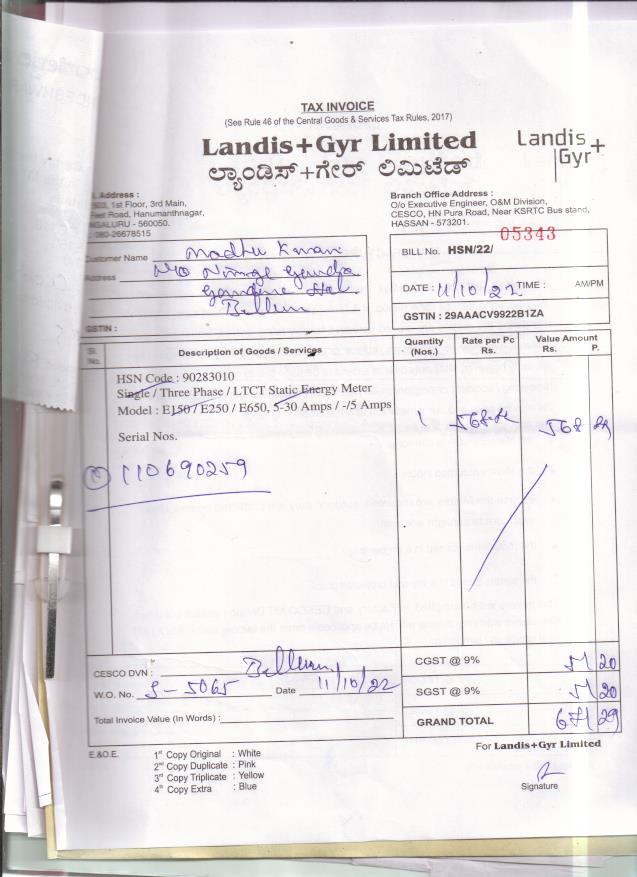 TAX INVOICE
(See Rule 46 of the Central Goods & Services Tax Rules, 2017)
Landis+Gyr Limited
ಲ್ಯಾಂಡಿಸ್+ಗೇರ್ ಲಿಮಿಟೆಡ್
Landis
Gyr+
Address :
1st Floor, 3rd Main,
Road, Hanumanthnagar,
- 560050.
080-26678515
Branch Office Address :
O/o Executive Engineer, O&M Division,
CESCO, HN Pura Road, Near KSRTC Bus stand,
HASSAN - 573201.
Customer Name Madhu Kumar
Address
Bellur
GSTIN :
05343
BILL No. HSN/22/
DATE : 11/10/22 TIME : AM/PM
GSTIN : 29AAACV9922B1ZA
Sl. No. Description of Goods / Services Quantity (Nos.) Rate per Pc Rs. Value Amount Rs. P.
HSN Code : 90283010
Single / Three Phase / LTCT Static Energy Meter
Model : E150 / E250 / E650, 5-30 Amps / -/5 Amps 1 568 568
Serial Nos.
110690259
CESCO DVN : Bellur
W.O. No. S-5065 Date 11/10/22
Total Invoice Value (In Words) :
CGST @ 9% 51 20
SGST @ 9% 51 20
GRAND TOTAL 671 29
E.&O.E. 1st Copy Original : White
2nd Copy Duplicate : Pink
3rd Copy Triplicate : Yellow
4th Copy Extra : Blue
For Landis+Gyr Limited
Signature